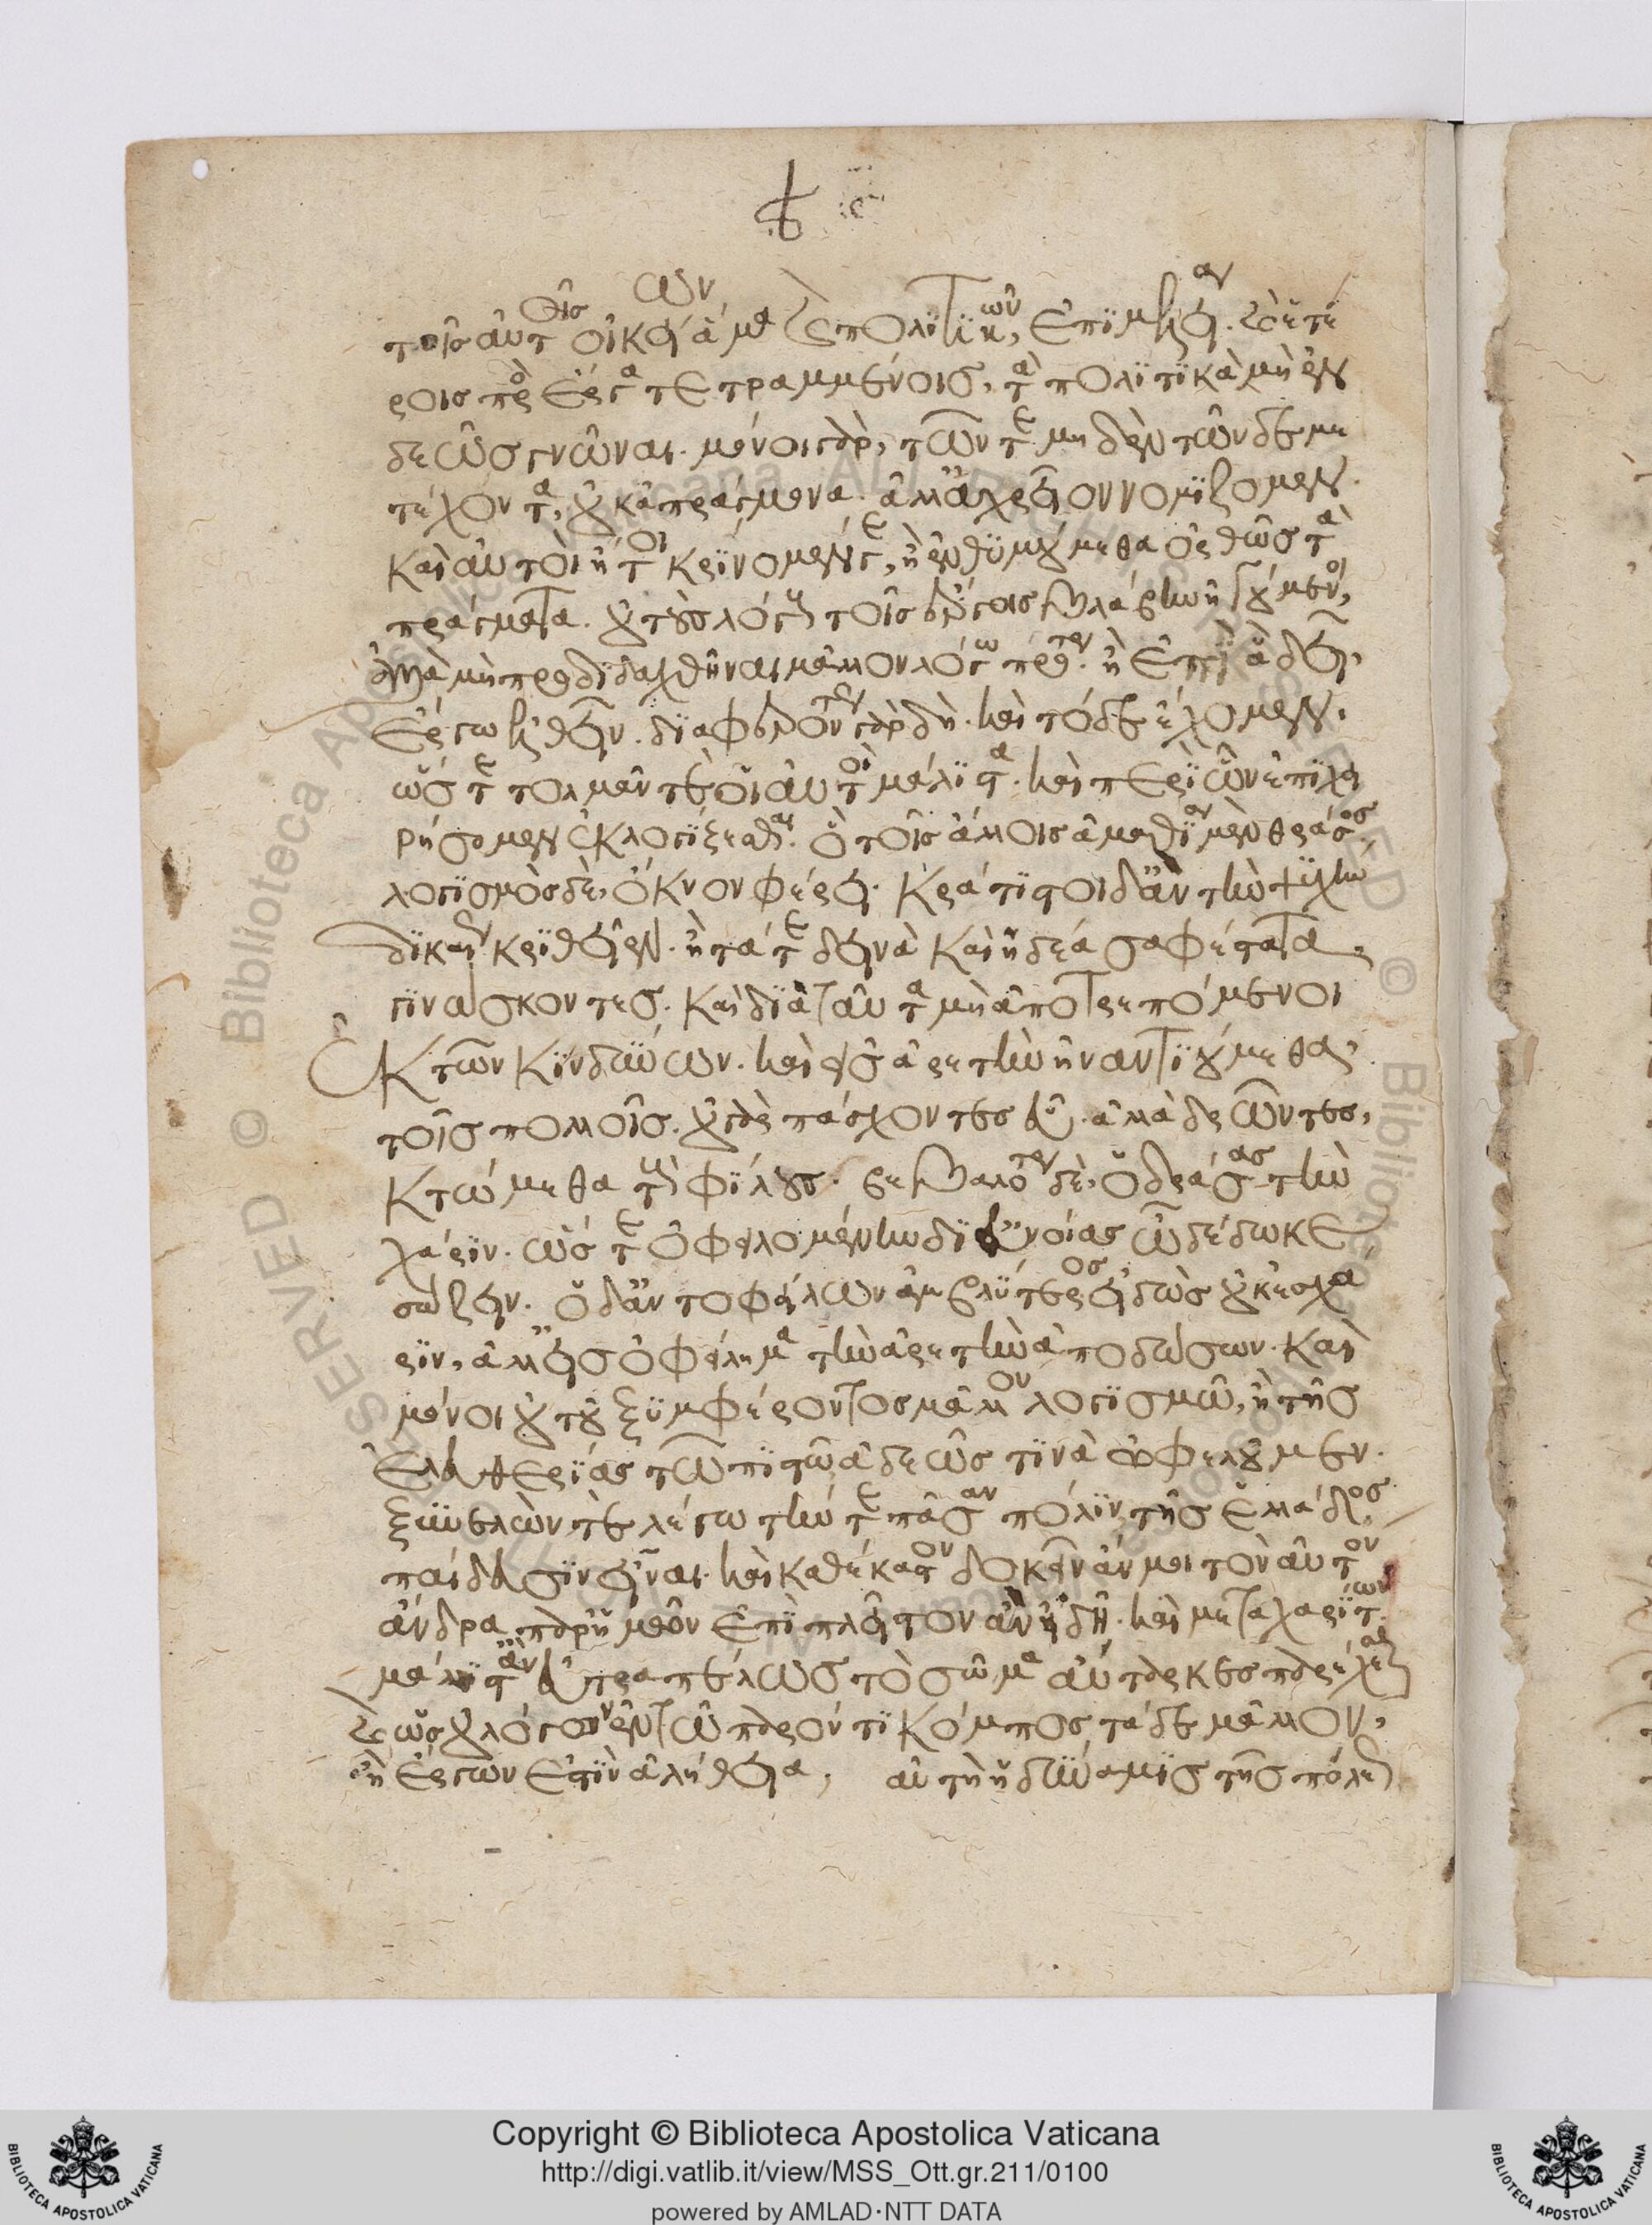 τοῖς αὐτοῖς οἰκείων ἅμα καὶ πολιτικῶν, ἐπιμέλεια. καὶ ἑτέ
ροις πρὸς ἔργα τετραμμένοις, τὰ πολιτικὰ μὴ ἐν
δεῶς γνῶναι. μόνοι γὰρ, τόν τε μηδὲν τῶνδε με
τέχοντα, οὐκ ἀπράγμονα. ἀλλ' ἀχρεῖον νομίζομεν.
καὶ αὐτοὶ ἤτοι κρίνομέν γε, ἢ ἐνθυμούμεθα ὀρθῶς τὰ
πράγματα. οὐ τοὺς λόγους τοῖς ἔργοις βλάβην ἡγούμενοι,
ἀλλὰ μὴ προδιδαχθῆναι μᾶλλον λόγω πρότερον. ἢ ἐπὶ ἃ δεῖ,
ἔργω ἐλθεῖν. διαφερόντως γὰρ δὴ. καὶ τόδε ἔχομεν.
ὥστε τολμᾶν τε οἱ αὐτοὶ μάλιστα. καὶ περὶ ὧν ἐπιχει
ρήσομεν ἐκλογίζεσθαι. ὃ τοῖς ἄλλοις ἀμαθία μὲν θράσος,
λογισμὸς δὲ, ὄκνον φέρει. κράτιστοι δ' ἂν τὴν ψυχὴν
δικαίως κριθεῖεν. οἱ τά τε δεινὰ καὶ ἡδέα σαφέστατα
γινώσκοντες. καὶ διὰ ταῦτα μὴ ἀποτρεπόμενοι
ἐκ τῶν κινδύνων. καὶ ἐς ἀρετὴν ἠναντιούμεθα
τοῖς πολλοῖς. οὐ γὰρ πάσχοντες εὖ. ἀλλὰ δρῶντες,
κτώμεθα τοὺς φίλους. βεβαιότερος δὲ, ὁ δράσας τὴν
χάριν. ὥστε ὀφειλομένην δι' εὐνοίας ὧ δέδωκε
σώζειν. ὁ δ' ἀντοφείλων ἀμβλύτερος εἰδὼς οὐκ ἐς χά
ριν, ἀλλ' ἐς ὀφείλημα τὴν ἀρετὴν ἀποδώσων. καὶ
μόνοι οὐ τοῦ ξυμφέροντος μᾶλλον λογισμῶ, ἢ τῆς
ἐλευθερίας τῶ πιστῶ ἀδεῶς τινὰ ὠφελοῦμεν.
ξυνελών τε λέγω τήν τε πᾶσαν πόλιν τῆς ἑλλάδος
παίδευσιν εἶναι. καὶ καθέκαστον δοκεῖν ἄν μοι τὸν αὐτὸν
ἄνδρα παρ' ἡμῶν ἐπὶ πλεῖστον ἂν εἴδη. καὶ μετὰ χαρίτων
μάλιστ' ἂν εὐτραπέλως τὸ σῶμα αὔταρκες παρέχεσθαι
καὶ ὡς οὐ λόγων ἐν τῶ παρόντι κόμπος τάδε μᾶλλον,
ἢ ἔργων ἐστὶν ἀλήθεια, αὐτὴ ἡ δύναμις τῆς πόλεως